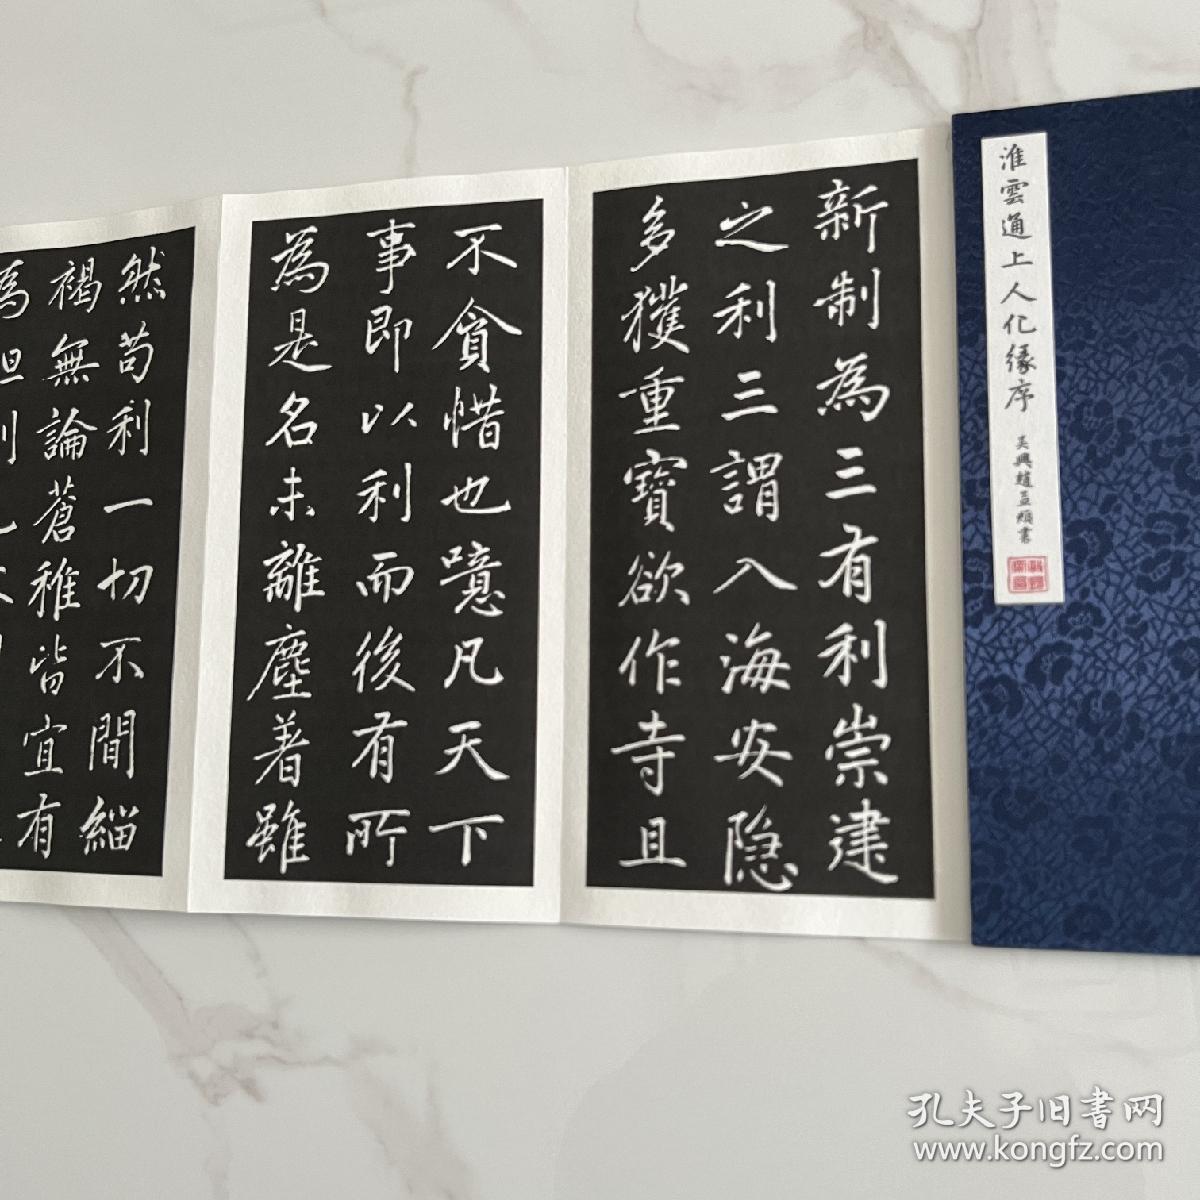 淮雲通上人化緣序
吴興趙孟頫書
新制為三有利崇建
之利三謂入海安隐
多獲重寶欲作寺且
不貪惜也噫凡天下
事即以利而後有所
為是名未離塵著雖
然苟利一切不間緇
褐無論蒼稚皆宜有
孔夫子旧書网
www.kongfz.com